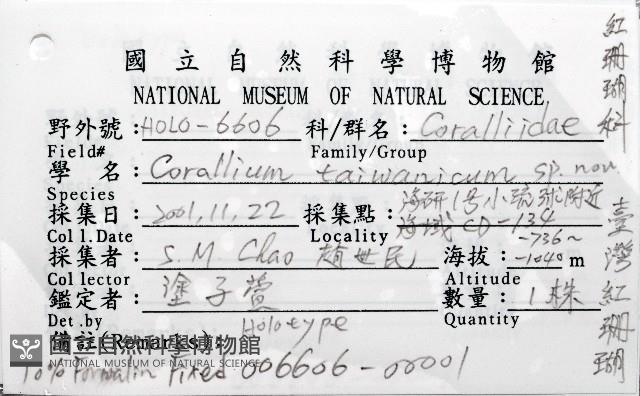 國立自然科學博物館
NATIONAL MUSEUM OF NATURAL SCIENCE
野外號:HOLO-6606 科/群名:Coralliidae
Field# Family/Group
學名:Corallium taiwanicum sp. nov
Species
採集日:2001,11,22 採集點:海研1號小琉球附近海域CD-134
Coll.Date Locality
採集者:S.M. Chao 趙世民 海拔:-736~-1040 m
Collector Altitude
鑑定者:塗子萱 數量:1株
Det.by Quantity
備註(Remarks): Holotype
10% Formalin Fixed 006606-00001
國立自然科學博物館
NATIONAL MUSEUM OF NATURAL SCIENCE
紅珊瑚科
臺灣紅珊瑚